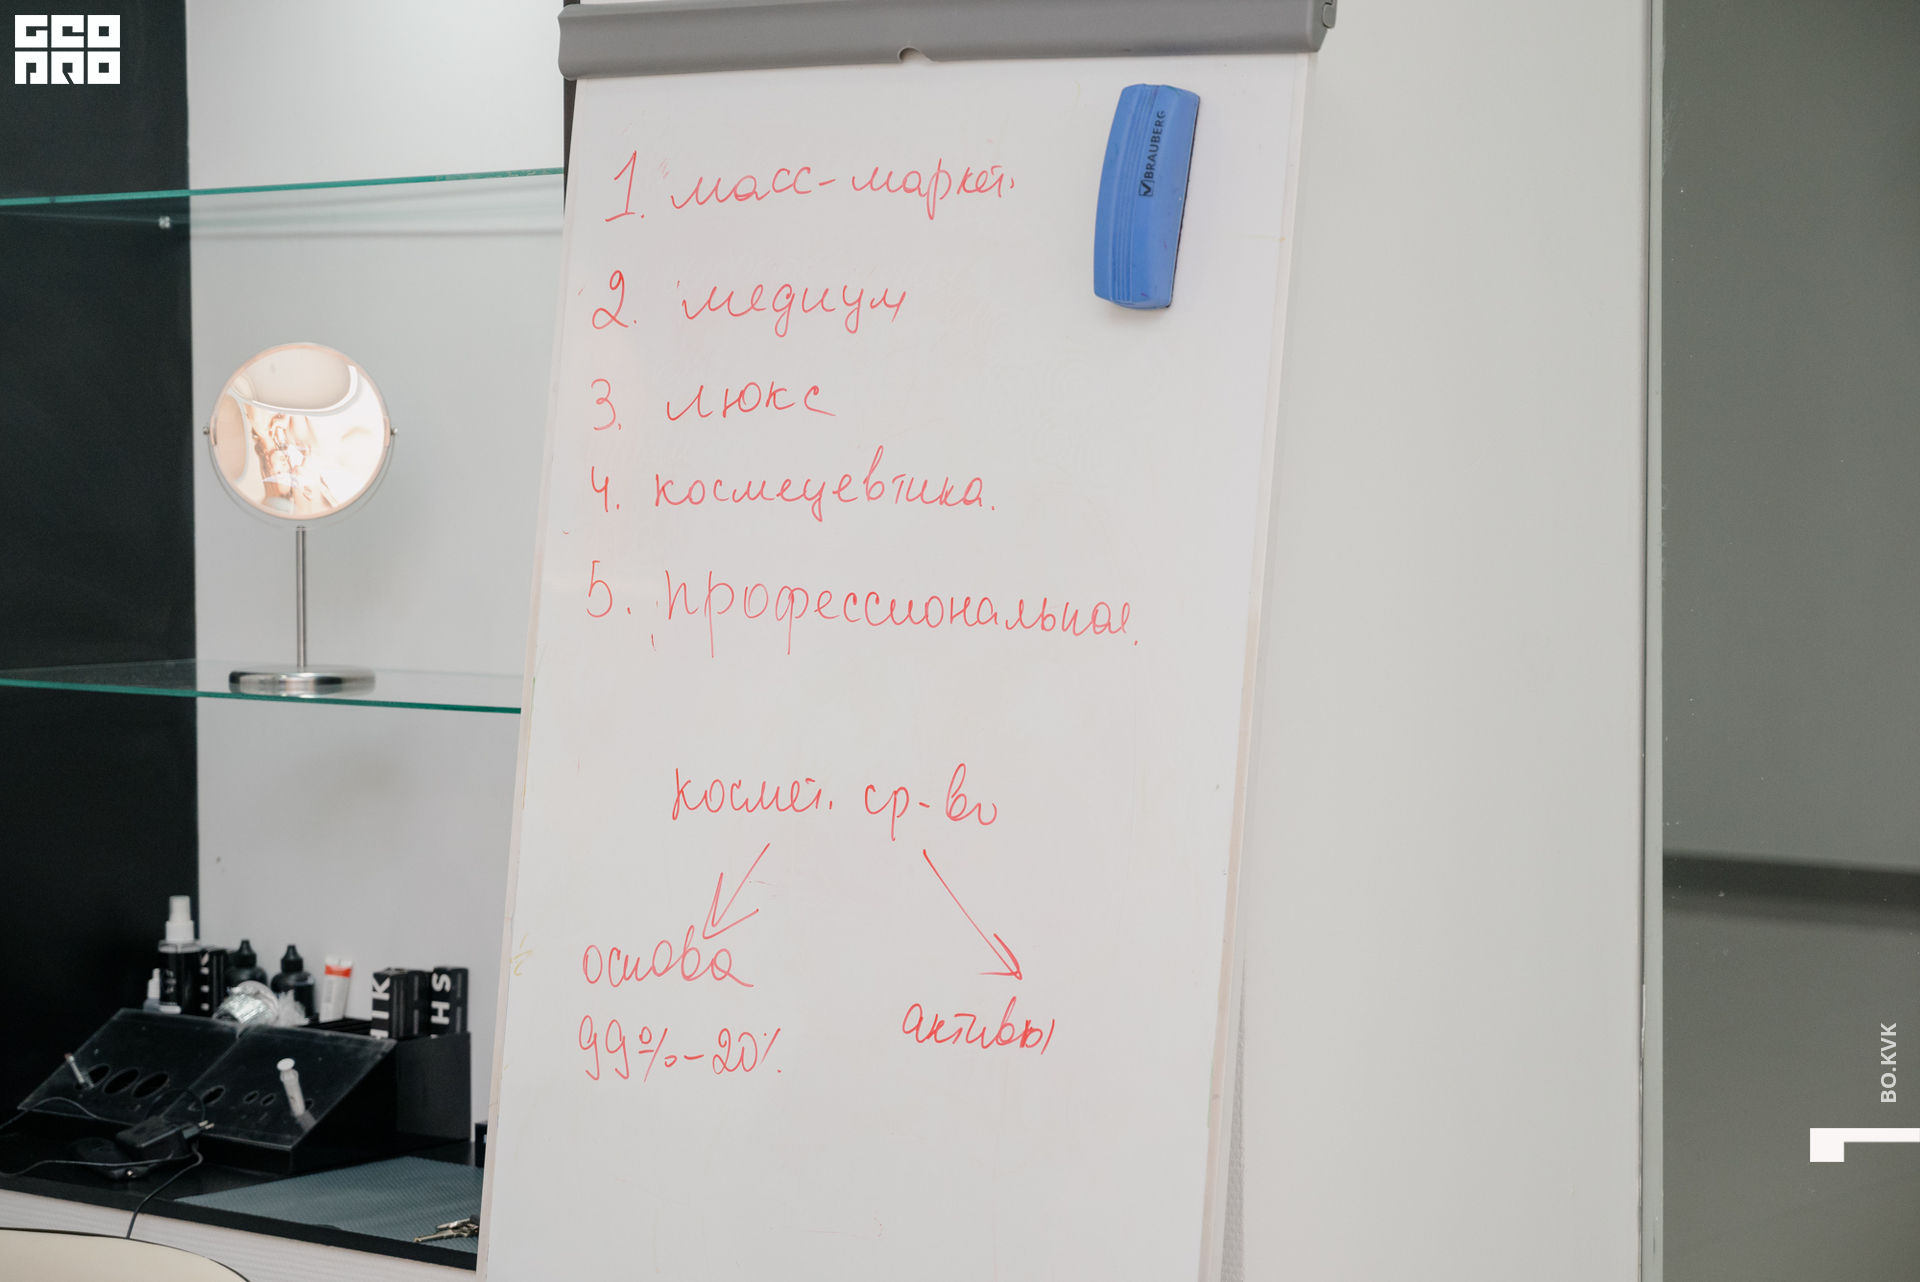 GEO
PRO
BRAUBERG
1. масс-маркет.
2. медиум
3. люкс
4. космецевтика.
5. профессиональная.
космет. ср-во
основа
активы
99%-20%
HIK
SH
BO.KVK